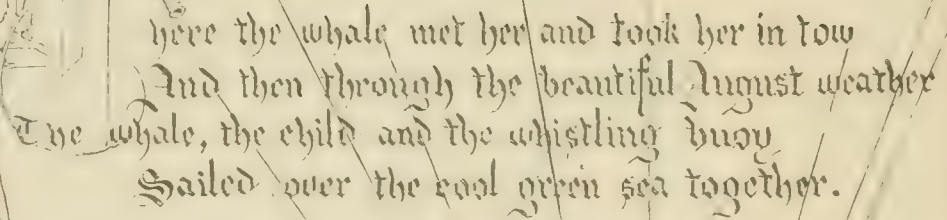 here the whale met her and took her in tow
And then through the beautiful August weather
The whale, the child and the whistling buoy
Sailed over the cool green sea together.